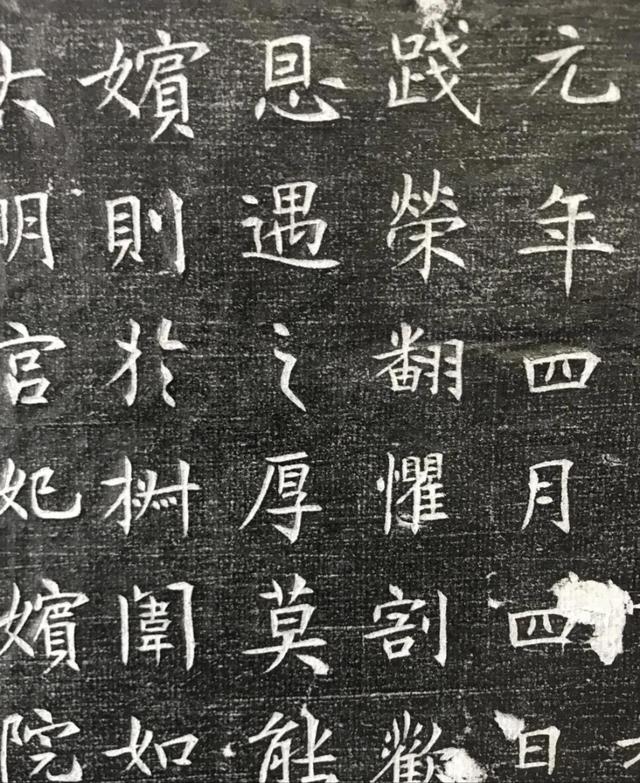 元年四月四日
踐榮翻懼割歡
恩遇之厚莫能
嬪則於椒闈如
大明宮妃嬪院